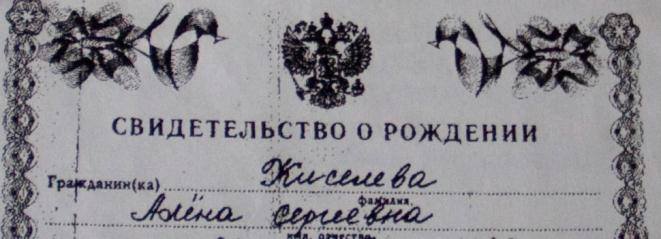 СВИДЕТЕЛЬСТВО О РОЖДЕНИИ
Гражданин(ка) Киселева
фамилия,
Алёна Сергеевна
имя, отчество